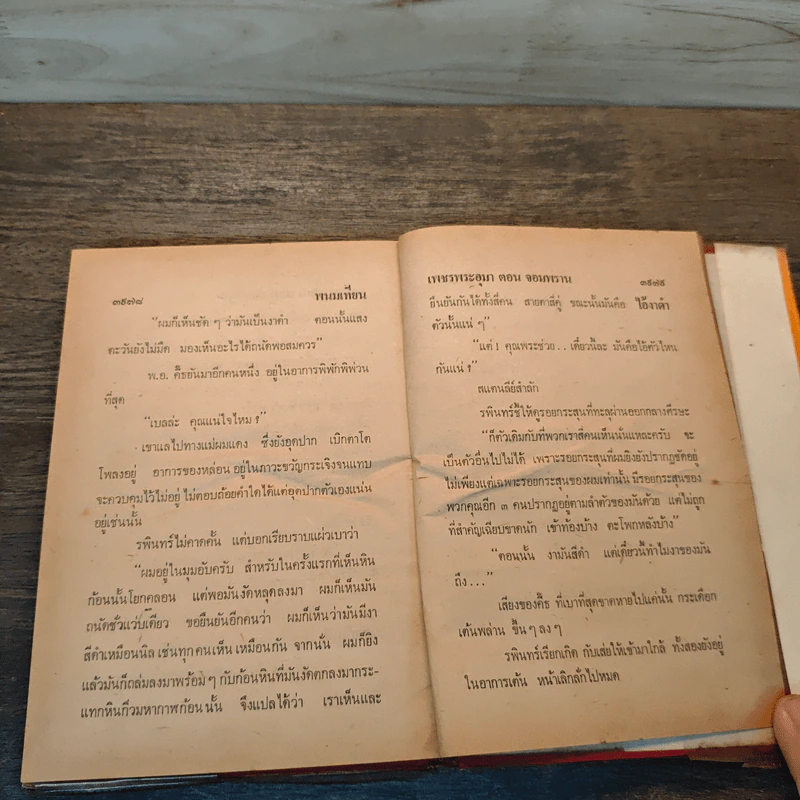 ๓๕๗๘ พนมเทียน
"ผมก็เห็นชัด ๆ ว่ามันเป็นงาดำ ตอนนั้นแสง
ตะวันยังไม่มืด มองเห็นอะไรได้ถนัดพอสมควร"
พ.อ. คี๊ธยันมาอีกคนหนึ่ง อยู่ในอาการพิพักพิพ่วน
ที่สุด
"เบลล่ะ คุณแน่ใจไหม ?"
เขาแลไปทางแม่ผมแดง ซึ่งยังอุดปาก เบิกตาโต
โพลงอยู่ อาการของหล่อน อยู่ในภาวะขวัญกระเจิงจนแทบ
จะควบคุมไว้ไม่อยู่ ไม่ตอบถ้อยคำใดได้แต่อุดปากตัวเองแน่น
อยู่เช่นนั้น
รพินทร์ไม่คาดคั้น แต่บอกเรียบราบแผ่วเบาว่า
"ผมอยู่ในมุมอับครับ สำหรับในครั้งแรกที่เห็นหิน
ก้อนนั้นโยกคลอน แต่พอมันงัดหลุดลงมา ผมก็เห็นมัน
ถนัดชั่วแว่บเดียว ขอยืนยันอีกคนว่า ผมก็เห็นว่ามันมีงา
สีดำเหมือนนิล เช่นทุกคนเห็น เหมือนกัน จากนั้น ผมก็ยิง
แล้วมันก็ถล่มลงมาพร้อม ๆ กับก้อนหินที่มันงัดตกลงมากระ-
แทกหินกิ่วมหากาฬก้อนนั้น จึงแปลได้ว่า เราเห็นและ
เพชรพระอุมา ตอน จอมพราน ๓๕๗๙
ยืนยันกันได้ทั้งสี่คน สายตาสี่คู่ ขณะนั้นมันคือ ไอ้งาดำ
ตัวนั้นแน่ ๆ"
"แต่ ! คุณพระช่วย . . . เดี๋ยวนี้ล่ะ มันคือไอ้ตัวไหน
กันแน่ ?"
สแตนลีย์สำลัก
รพินทร์ชี้ให้ดูรอยกระสุนที่ทะลุผ่านออกกลางศีรษะ
"ก็ตัวเดิมกับที่พวกเราสี่คนเห็นนั่นแหละครับ จะ
เป็นตัวอื่นไปไม่ได้ เพราะรอยกระสุนที่ผมยิงยังปรากฏชัดอยู่
ไม่เพียงแต่เฉพาะรอยกระสุนของผมเท่านั้น มีรอยกระสุนของ
พวกคุณอีก ๓ คนปรากฏอยู่ตามลำตัวของมันด้วย แต่ไม่ถูก
ที่สำคัญเฉียบขาดนัก เข้าท้องบ้าง ตะโพกหลังบ้าง"
"ตอนนั้น งามันสีดำ แต่เดี๋ยวนี้ทำไมงาของมัน
ถึง . . ."
เสียงของคี๊ธ ที่เบาที่สุดขาดหายไปแค่นั้น กระเดือก
เต้นพล่าน ขึ้น ๆ ลง ๆ
รพินทร์เรียกเกิด กับเส่ยให้เข้ามาใกล้ ทั้งสองยังอยู่
ในอาการเต้น หน้าเลิกลั่กไปหมด